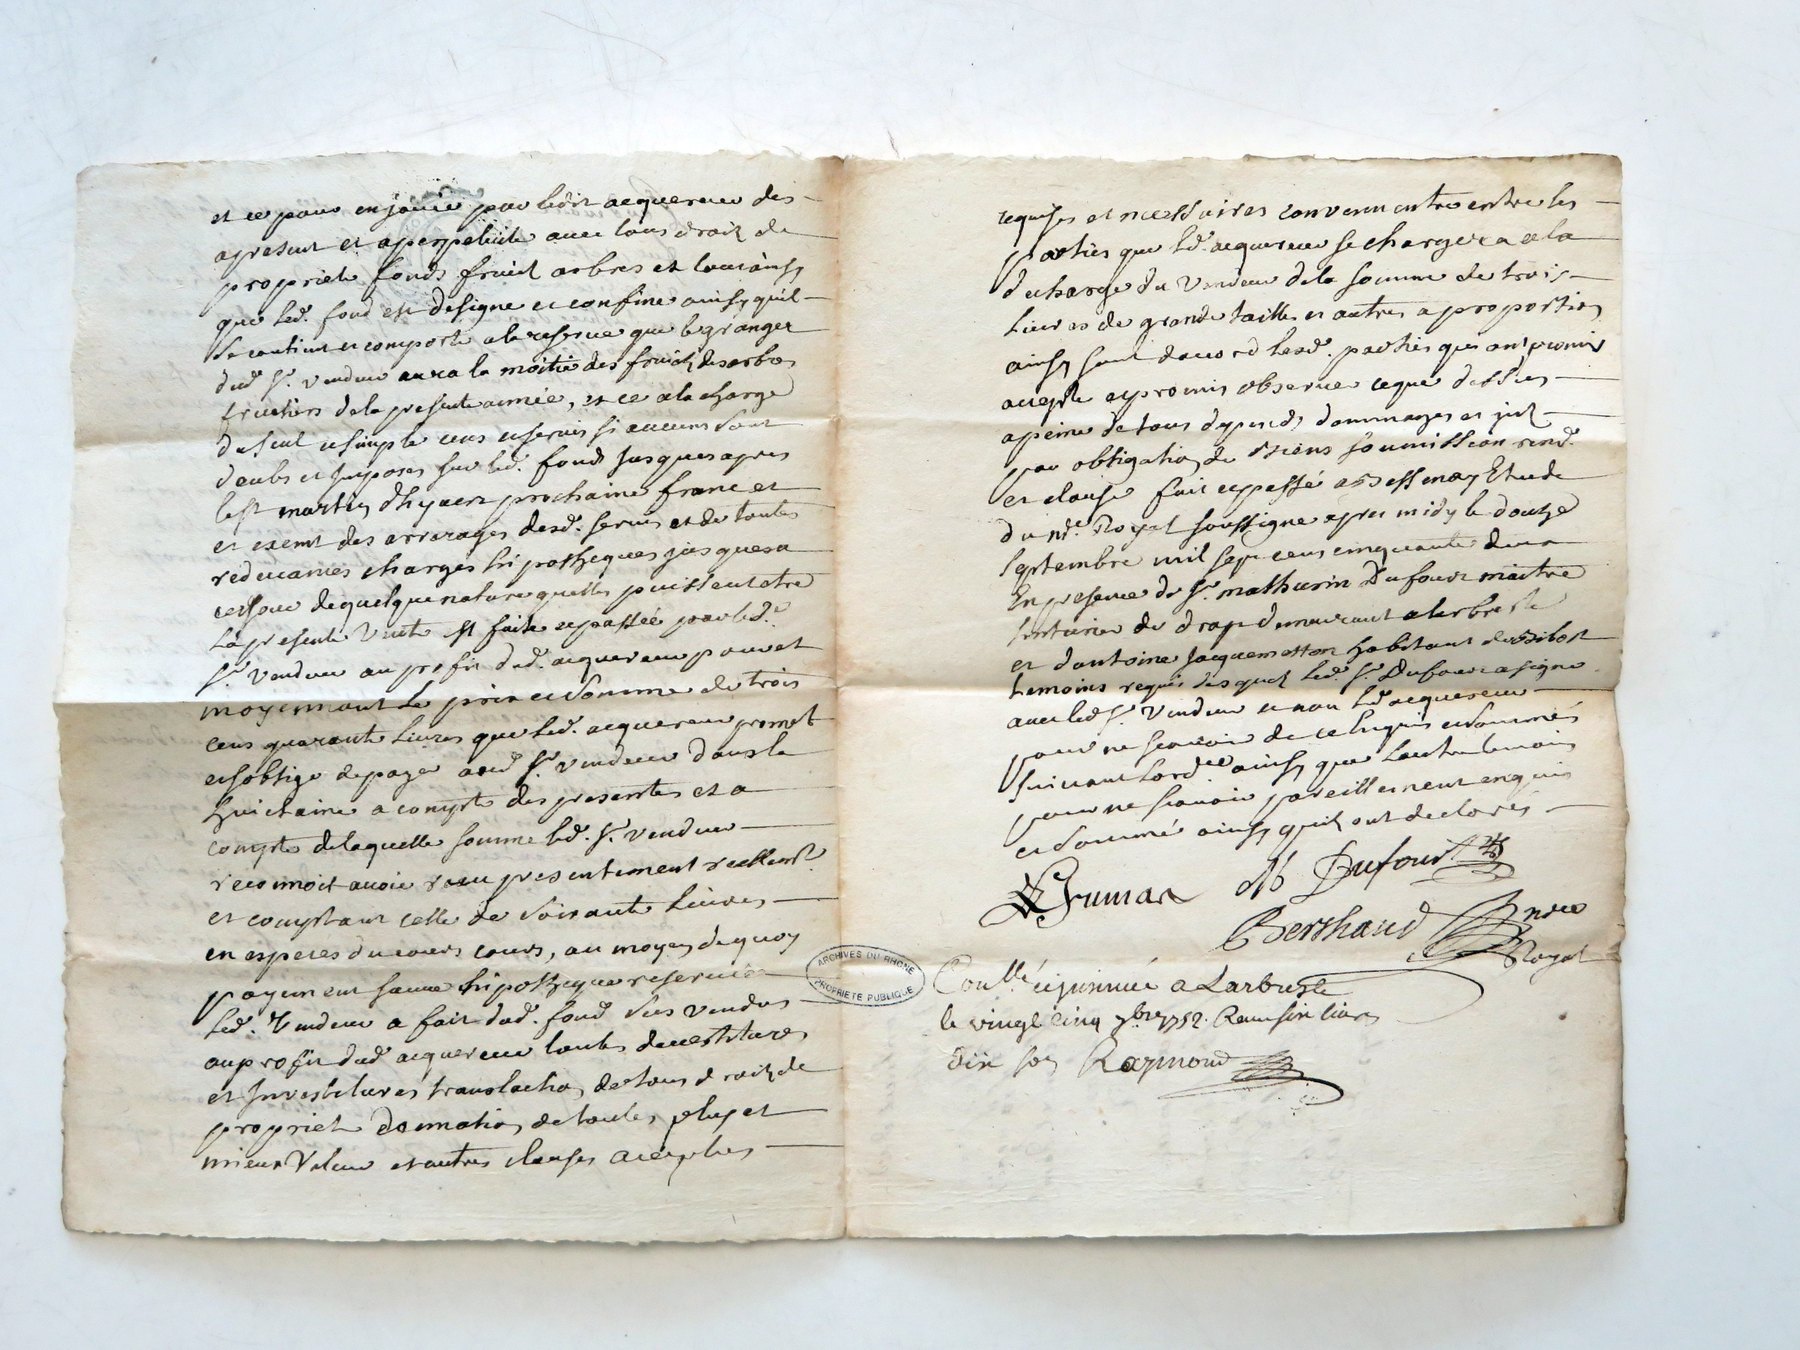 et ce pour en jouir par ledit acquereur des
apresent et aperpetuité avec tous droits de
proprieté fonds fruict arbres et tout ainsy
que led. fond est designe et confine ainsy quil
se contient et comporte ala reserve que le granger
dud. Sr. vendeur aura la moitie des fruicts des arbres
fruitiers de la presente année, et ce a la charge
du seul et simple cens et servis si aucuns sont
deubs et Imposés sur led. fonds jusques apres
la St martin dhyver prochaine franc et
et exemt des arrerages desd. servis et de toutes
redevances charges hipotheques jusquesa
ce jour de quelque nature quelles puissent etre
La presente Vente est faite et passée par led.
Sr. vendeur au profit dud. acquereur pour et
moyennant le prix et somme de trois
cens quarante Livres que led. acquereur promet
et soblige de payer aud. Sr. vendeur dans la
huictaine a compter des presentes et a
compte de laquelle somme led. Sr. vendeur
reconnoit avoir receu presentement reellemt.
et comptant celle de soixante Livres
en especes du cours, au moyen de quoy
payement sauve hipotheque reservée
led. Vendeur a fait dud. fond sus vendus
au profit dud. acquereur toutes devestitures
et Investitures translation de tous droits de
proprieté donnation de toutes plus et
mieux Valeur et autres clauses acceptées
requises et necessaires convenu entre les
parties que led. acquereur se chargera a la
decharge du Vendeur de la somme de trois
Livres de grande taille et autres a proportion
ainsy sont daccord lesd. parties qui ont promis
accepte et promis observer ce que dessus
a peine de tous depends dommages et jnt
par obligation de biens soumission renon.
et clause fait et passé a Bessenay Etude
du nre. Royal soussigne apres midy le douze
Septembre mil sept cens cinquante deux
En presence de Sr. mathurin Dufour maitre
teinturier de drap demeurant a larbresle
et dantoine jacquemetton habitant de Bibost
temoins requis desquels led. Sr. Dufour a signe
avec led. Sr. Vendeur et non led. acquereur
pour ne scavoir de ce enquis et sommés
suivant lordce. ainsy que lautre temoin
pour ne scavoir pareillement enquis
et sommé ainsy quils ont declarés
Grumar M Dufour
Berthaud Nre
Royal
Conllé. et jnsinué a Larbresle
le vingt cinq 7bre 1752. Reçu six livres
dix sols Raymond
ARCHIVES DU RHONE
PROPRIETE PUBLIQUE